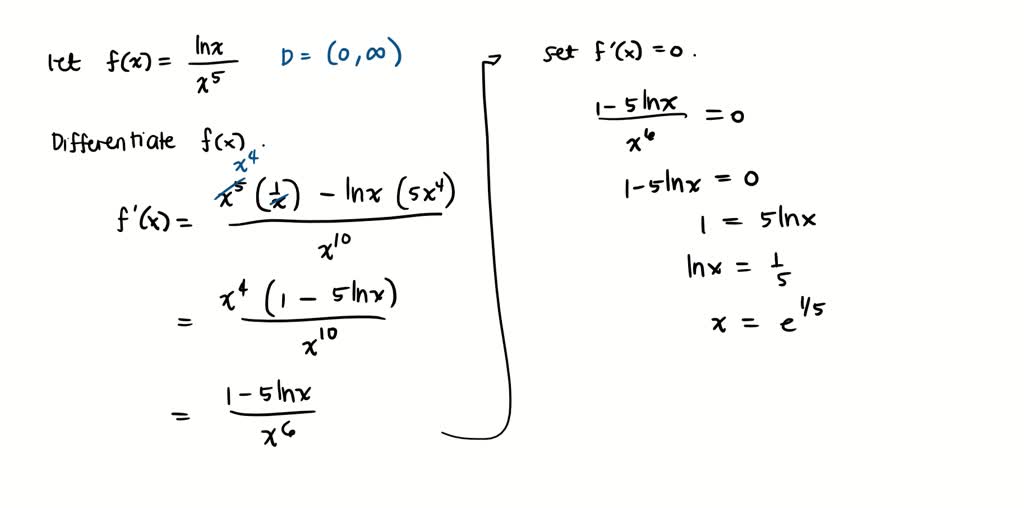 let f(x) = lnx / x^5 D = (0, ∞)
Differentiate f(x).
x^4
f'(x) = x^5 (1/x) - lnx (5x^4) / x^10
= x^4 (1 - 5lnx) / x^10
= 1 - 5lnx / x^6
set f'(x) = 0.
1 - 5lnx / x^6 = 0
1 - 5lnx = 0
1 = 5lnx
lnx = 1/5
x = e^1/5